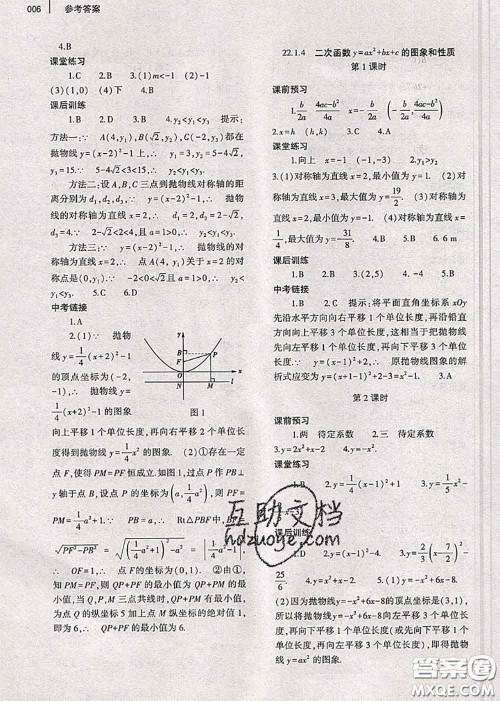 006 参考答案
4.B
课堂练习
1.C 2.D 3.(1)m<-1 (2)-1
(3)(1,0) 4.(1)0 (2)下
课后训练
1.B 2.D 3.A 4.y₂<y₁<y₃ 提示:
方法一:∵ A(4,y₁),B(√2,y₂),C(-2,y₃)都在
抛物线y=(x-2)²-1上, ∴ y₁=3,y₂=5-4√2,
y₃=15.∵ 5-4√2<3<15, ∴ y₂<y₁<y₃.
方法二:设A,B,C三点到抛物线对称轴的距
离分别为d₁,d₂,d₃.∵ y=(x-2)²-1, ∴ 抛物
线的对称轴为直线x=2, ∴ d₁=2,d₂=2-√2,d₃=
4.∵ 2-√2<2<4,且a=1>0, ∴ y₂<y₁<y₃.
方法三:∵ y=(x-2)²-1, ∴ 抛物线的对称
轴为直线x=2, ∴ 点A(4,y₁)关于x=2的对
称点是(0,y₁).∵ -2<0<√2且a=1>0, ∴ y₂<
y₁<y₃. 5.C 6.D
中考链接
1.A
2.(1)∵ 抛物
线y=1/4(x+2)²-1
的顶点坐标为(-2,
-1), ∴ 抛物线y=
1/4(x+2)²-1的图象
y
B
F
P
O
x
N
M
l
图1
向上平移1个单位长度,再向右平移2个单位长
度得到抛物线y=1/4x²的图象. (2)①存在一定
点F,使得PM=PF恒成立.如图1,过点P作PB⊥
y轴于点B,设点P的坐标为(a,1/4a²),则PF=
PM=1/4a²+1.∵ PB=a, ∴ Rt△PBF中,BF=
√(PF²-PB²)=√((1/4a²+1)²-a²)=1/4a²-1,
∴ OF=1, ∴ 点F的坐标为(0,1). ②由①,
知PM=PF,则QP+PF的最小值为QP+PM的最
小值,当Q,P,M三点共线时,QP+PM有最小值,
为点Q的纵坐标5加上点M纵坐标的绝对值1,
即为6. ∴ QP+PF的最小值为6.
22.1.4 二次函数y=ax²+bx+c的图象和性质
第1课时
课前预习
1.b/2a (4ac-b²)/4a x=-b/2a (-b/2a,(4ac-b²)/4a)
2.x=h (h,k) 3.C 4.A
课堂练习
1.向上 x=-1 (-1,-3) 2.y₁>y₂
3.B 4.(1)对称轴为直线x=2,最小值为0. (2)对
称轴为直线x=3,最大值为19/2. (3)对称轴为直线x=
1/4,最大值为-31/8. 5.B 6.6 m
课后训练
1.B 2.B 3.(2,5) 4.-4 5.B
中考链接
1.B 2.C 提示:将平面直角坐标系xOy
先沿水平方向向右平移1个单位长度,再沿铅直
方向向上平移3个单位长度,这相当于把抛物线
先向左平移1个单位长度,再向下平移3个单位
长度.∵ y=(x-1)²+2, ∴ 原抛物线图象的解
析式应变为y=(x-1+1)²+2-3=x²-1. 3.A
第2课时
课前预习
1.两 待定系数 2.三 待定系数
课堂练习
1.B 2.y=(x-2)²-1 3.y=1/5x² 4.y=
课后训练
1.D 2.y=(x-1)²-4 3.y=2/3(x-7/2)²-
25/6. 4.(1)y=-x²+6x-8.
(2)因为抛物线y=-x²+6x-8的顶点坐标是(3,1),
所以向左平移3个单位长度(或向下平移1个
单位长度)或先向下平移1个单位长度(或先向
左平移3个单位长度),再向下平移
线y=ax²的图象.
互助文档
hdzuoye.com
答案圈
MXQE.COM